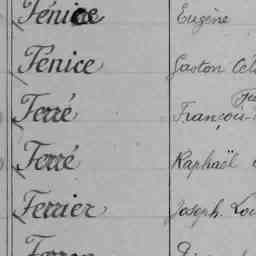 Fénice Eugène
Fénice Gaston
Ferré François
Ferré Raphaël
Ferrier Joseph. Lou